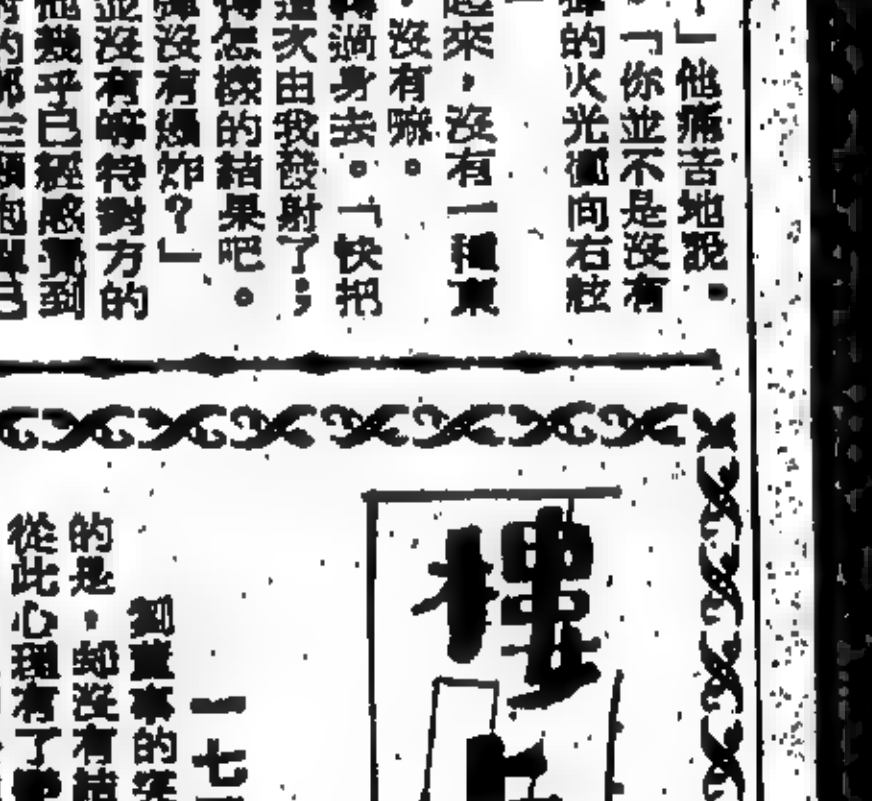 」他痛苦地說。
「你並不是沒有
彈的火光衝向右舷
起來，沒有一種東
。沒有嚇。
轉過身去。「快把
這次由我發射了；
得怎樣的結果吧。
彈沒有爆炸？」
並沒有等待對方的
他幾乎已經感覺到
樓上
一七
劉董事的
的是，却沒有結
從此心理有了